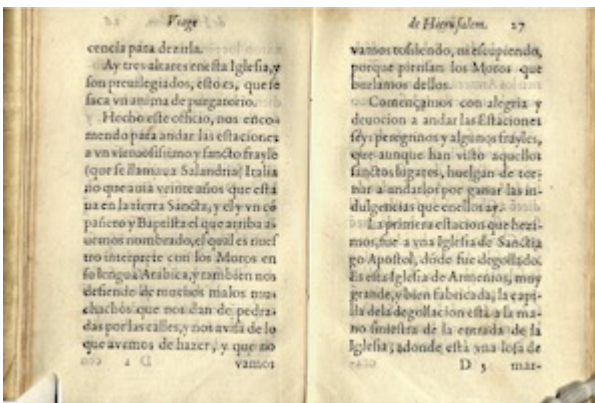 Viage
cencia para dezirla.
Ay tres altares en esta Iglesia, y
son preuilegiados, esto es, que se
saca vn anima de purgatorio.
Hecho este oficio, nos enco-
mendo para andar las estaciones
a vn vienosissimo y sancto frayle
(que se llamaua Salandria) Italia
no que auia veinte años que esta
ua en la tierra Sancta, y el y vn cõ
pañero y Baptista el que arriba a-
uemos nombrado, el qual es nues
tro interprete con los Moros en
su lengua Arabica, y tambien nos
defiende de muchos malos mu-
chachos que nos dan de pedra-
das por las calles, y nos auisa de lo
que auemos de hazer, y que no
D 2 vamos
de Hierusalem. 27
vamos tosiendo, ni escupiendo,
porque piensan los Moros que
burlamos dellos.
Començamos con alegria y
deuocion a andar las Estaciones
seys peregrinos y algunos frayles,
que aunque han visto aquellos
sanctos lugares, huelgan de tor-
nar a andarlos por ganar las in-
dulgencias que en ellos ay.
La primera estacion que hezi-
mos, fue a vna Iglesia de Sanctia
go Apostol, dõde fue degollado.
Es esta Iglesia de Armenios, muy
grande, y bien fabricada, la capi-
lla dela degollacion està a la ma-
no siniestra de la entrada de la
Iglesia, adonde està vna losa de
D 3 mar-